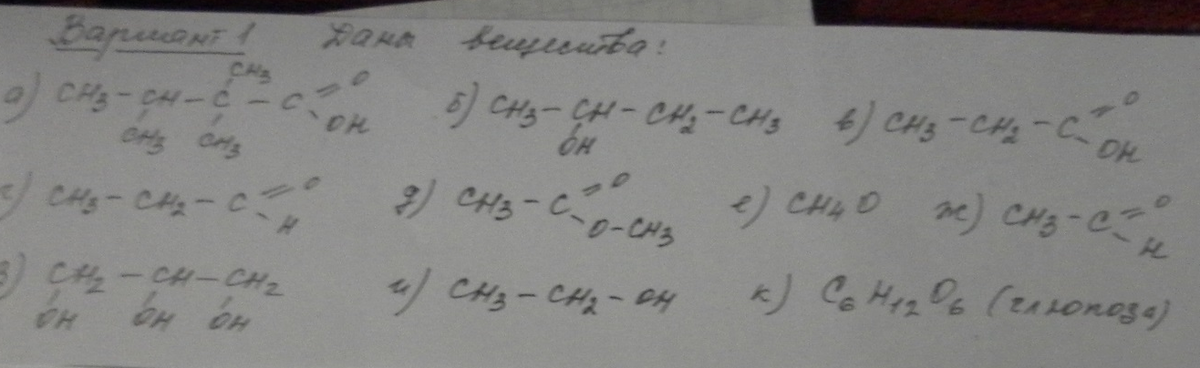 Вариант 1 Даны вещества:
а) CH3-CH-C-C=O OH CH3 CH3 CH3 б) CH3-CH-CH2-CH3 OH в) CH3-CH2-C=O OH
г) CH3-CH2-C=O H д) CH3-C=O O-CH3 е) CH4O ж) CH3-C=O H
з) CH2-CH-CH2 OH OH OH и) CH3-CH2-OH к) C6H12O6 (глюкоза)